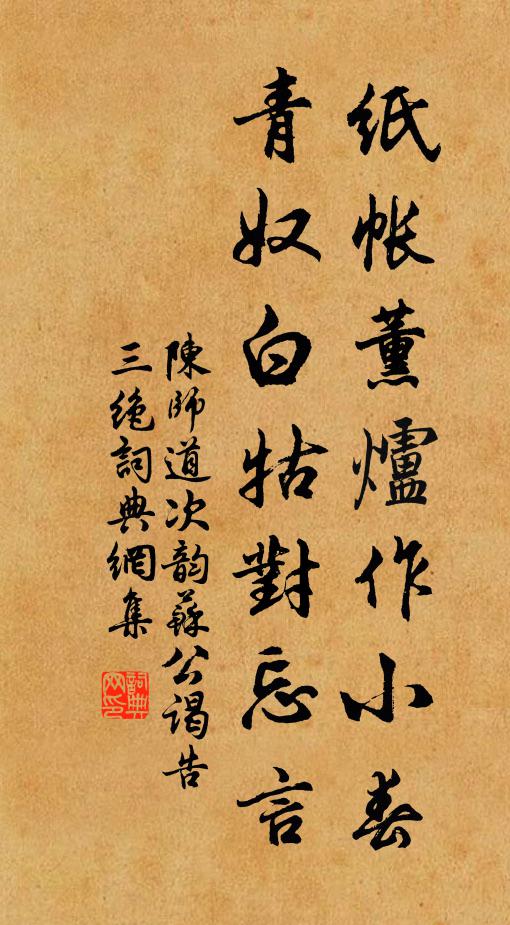 紙帳薰爐作小春
青奴白牯對忘言
陳師道次韵蘇公谒告
三绝詞典網集
詞典网印